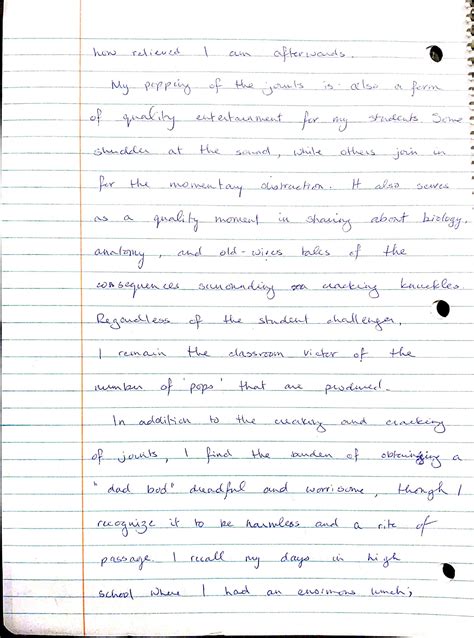 how relieved I am afterwards.
My popping of the joints is also a form
of quality entertainment for my students. Some
shudder at the sound, while others join in
for the momentary distraction. It also serves
as a quality moment in sharing about biology,
anatomy, and old-wives tales of the
consequences surrounding cracking knuckles.
Regardless of the student challenger,
I remain the classroom victor of the
number of "pops" that are produced.
In addition to the creaking and cracking
of joints, I find the burden of obtaining a
"dad bod" dreadful and worrisome, though I
recognize it to be harmless and a rite of
passage. I recall my days in high
school where I had an enormous lunch,